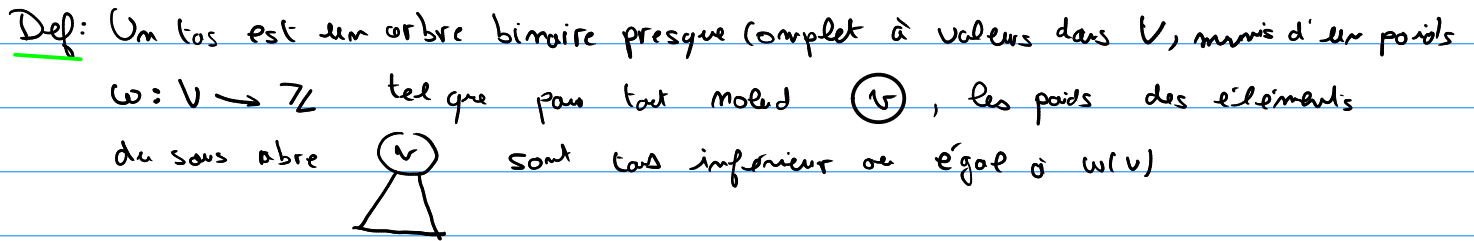 Def: Un tas est un arbre binaire presque complet à valeurs dans V, munis d'un poids
ω: V → ℤ tel que pour tout noeud v, les poids des éléments
du sous abre v sont tous inférieur ou égal à w(v)